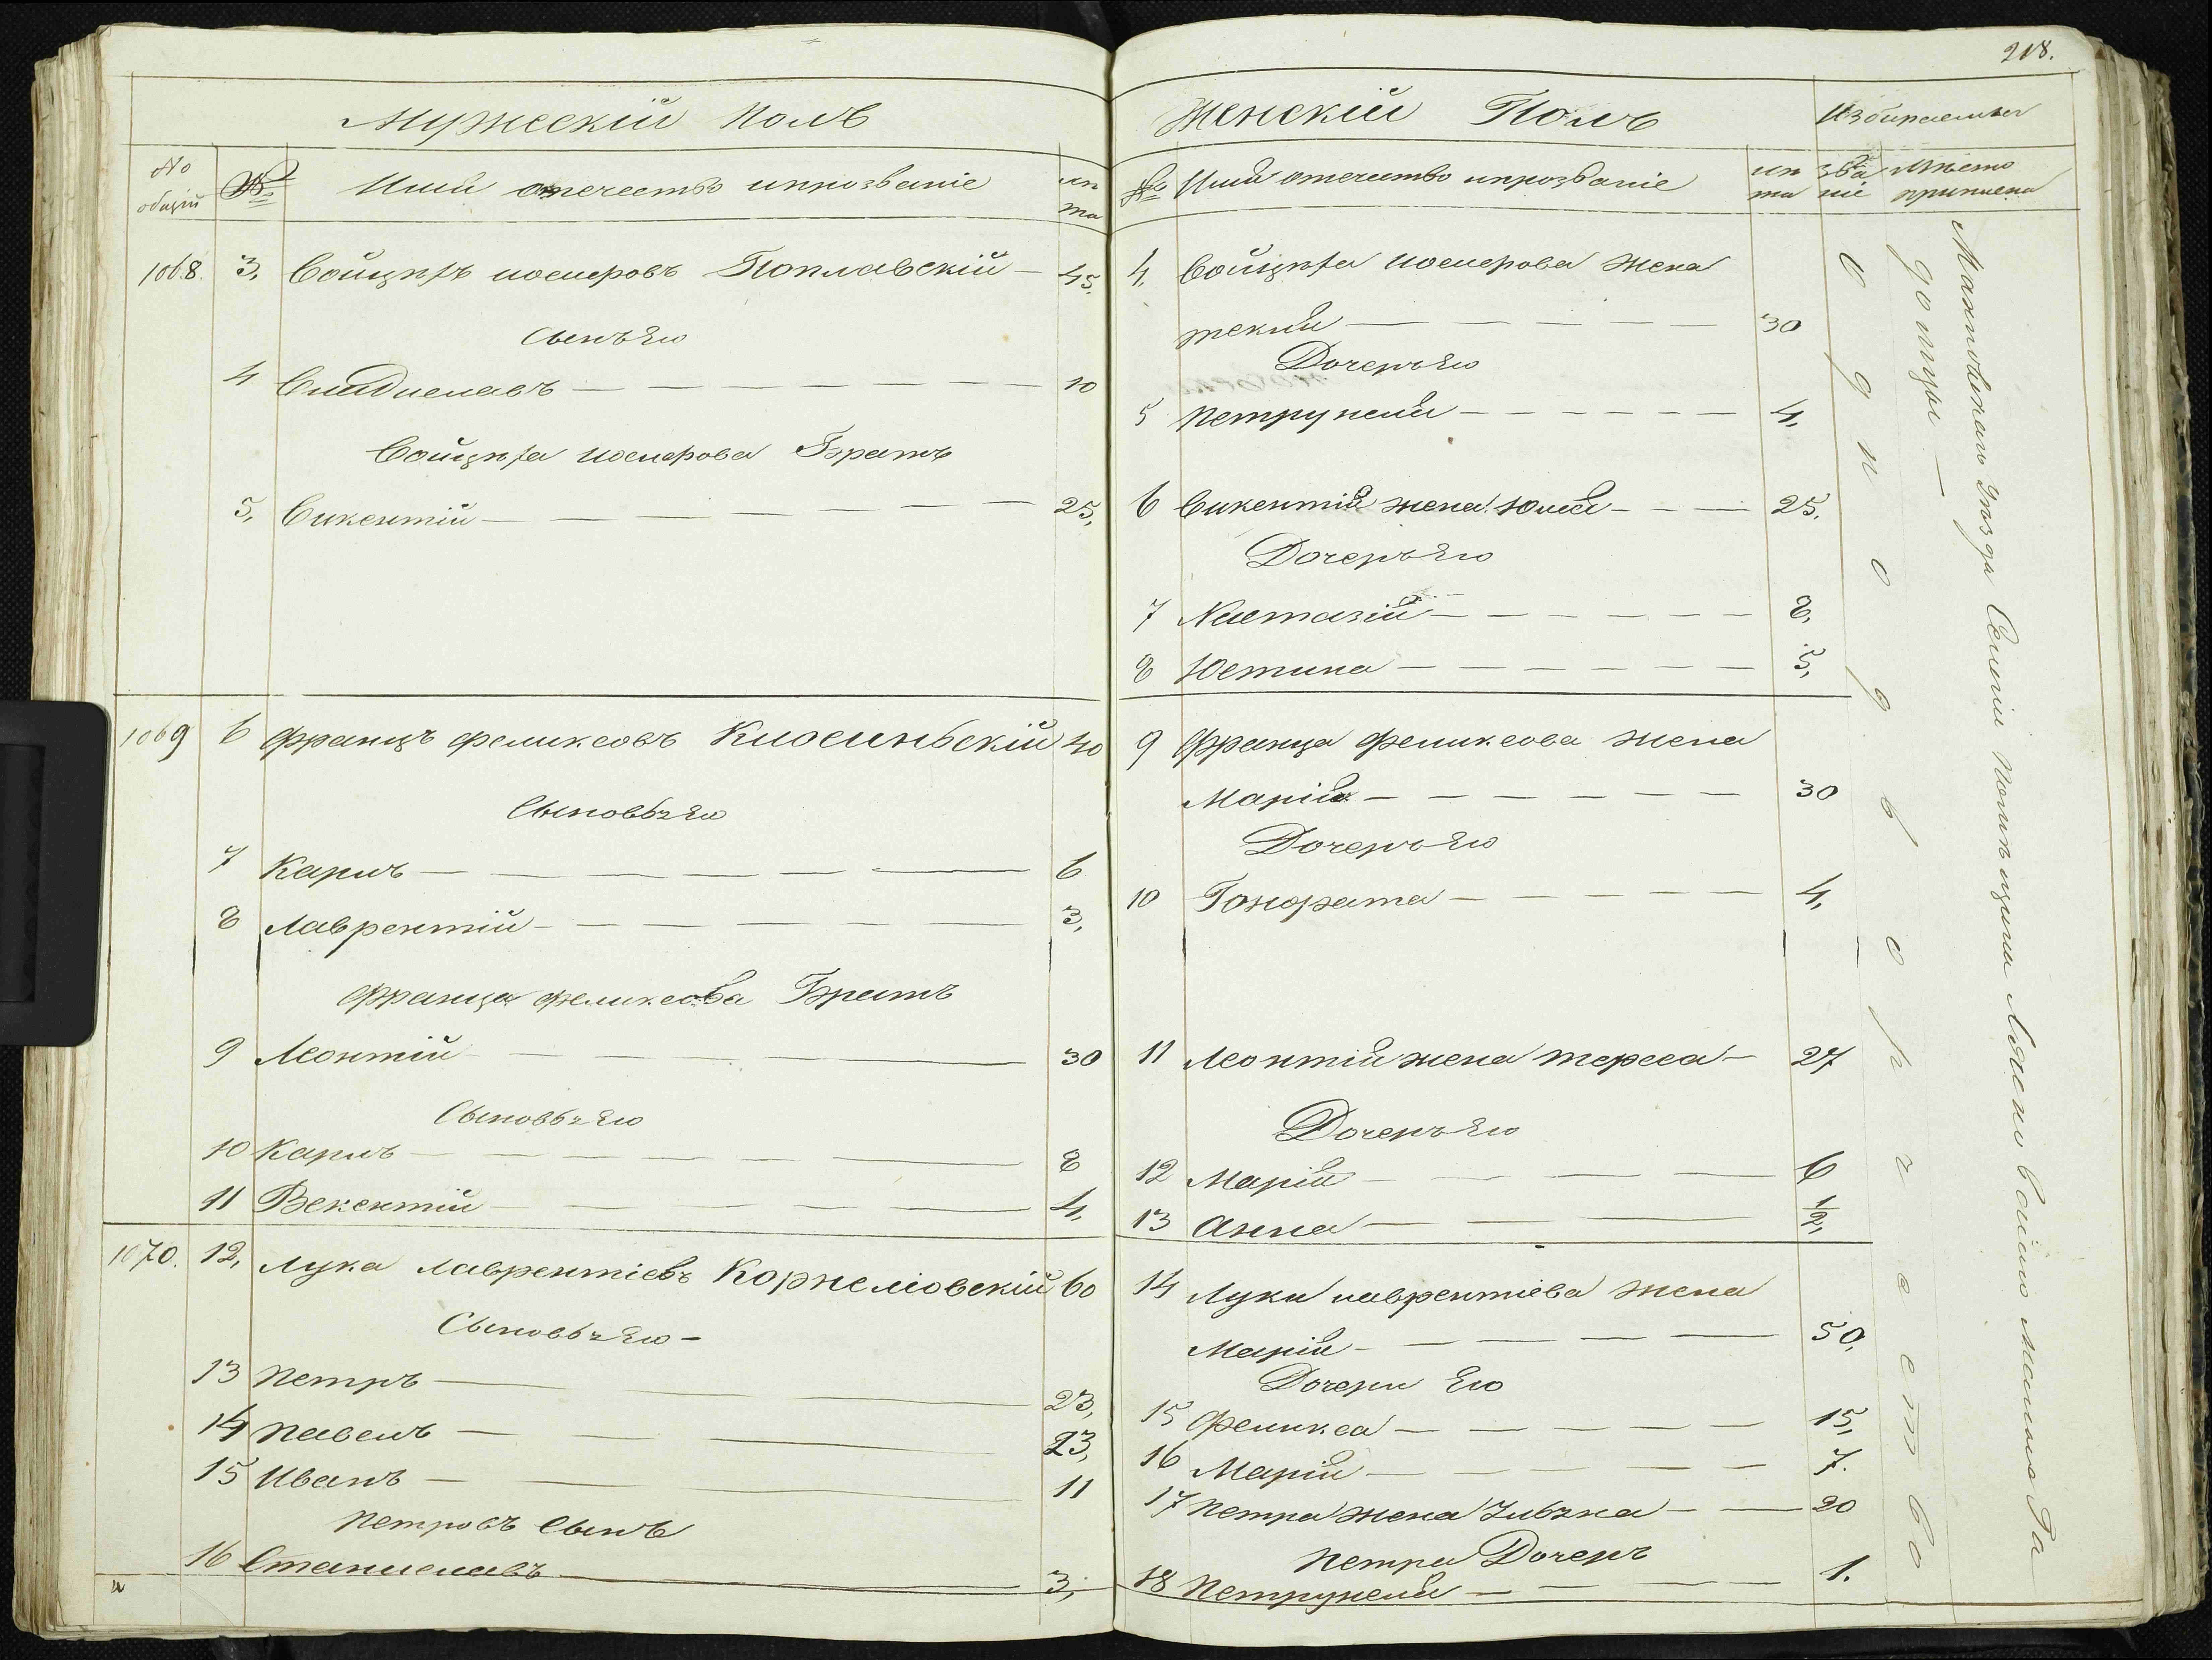 218.
Мужескій Полъ
No общій
№
Имя отечество ипрозваніе
лѣта
1068. 3, Войцѣхъ иосиѳровъ Поплавскій — 45.
Сынъ Его
4 Владиславъ — 10
Войцѣха иосиѳрова Братъ
5, Викентій — 25,
1069 6 Францъ феликсовъ Клосиньскій 40
Сыновьъ Его
7 Карлъ — 6
8 Лаврентій — 3,
Франца феликсова Братъ
9 Леонтій — 30
Сыновьъ Его
10 Карлъ — 8
11 Векентій — 4,
1070. 12, Лука лаврентіевъ Корнеліовскій 60
Сыновьъ Его —
13 Петръ — 23,
14 Павелъ — 23,
15 Иванъ — 11
Петровъ Сынъ
16 Станиславъ — 3,
Женскій Полъ
Избираемыя
№ Имя отечество ипрозваніе
лѣта
званіе
мѣсто приписки
4, Войцѣха иосиѳрова Жена
текля — 30
Дочеръ Его
5 Петрунеля — 4,
6 Викентія жена Юлія — 25.
Дочеръ Его
7 Настазія — 8,
8 Юстина — 5,
9 Франца феликсова жена
Марія — 30
Дочеръ Его
10 Гонората — 4,
11 Леонтія жена тереса — 27
Дочеръ Его
12 Марія — 6
13 Анна — 1/2,
14 Луки лаврентіева жена
Марія — 50,
Дочери Его
15 Феликса — 15,
16 Марія — 7.
17 Петра жена — 20
Петра Дочеръ
18 Петрунеля — 1.
Однодворчество
Уѣзда Селеніи Помѣщика